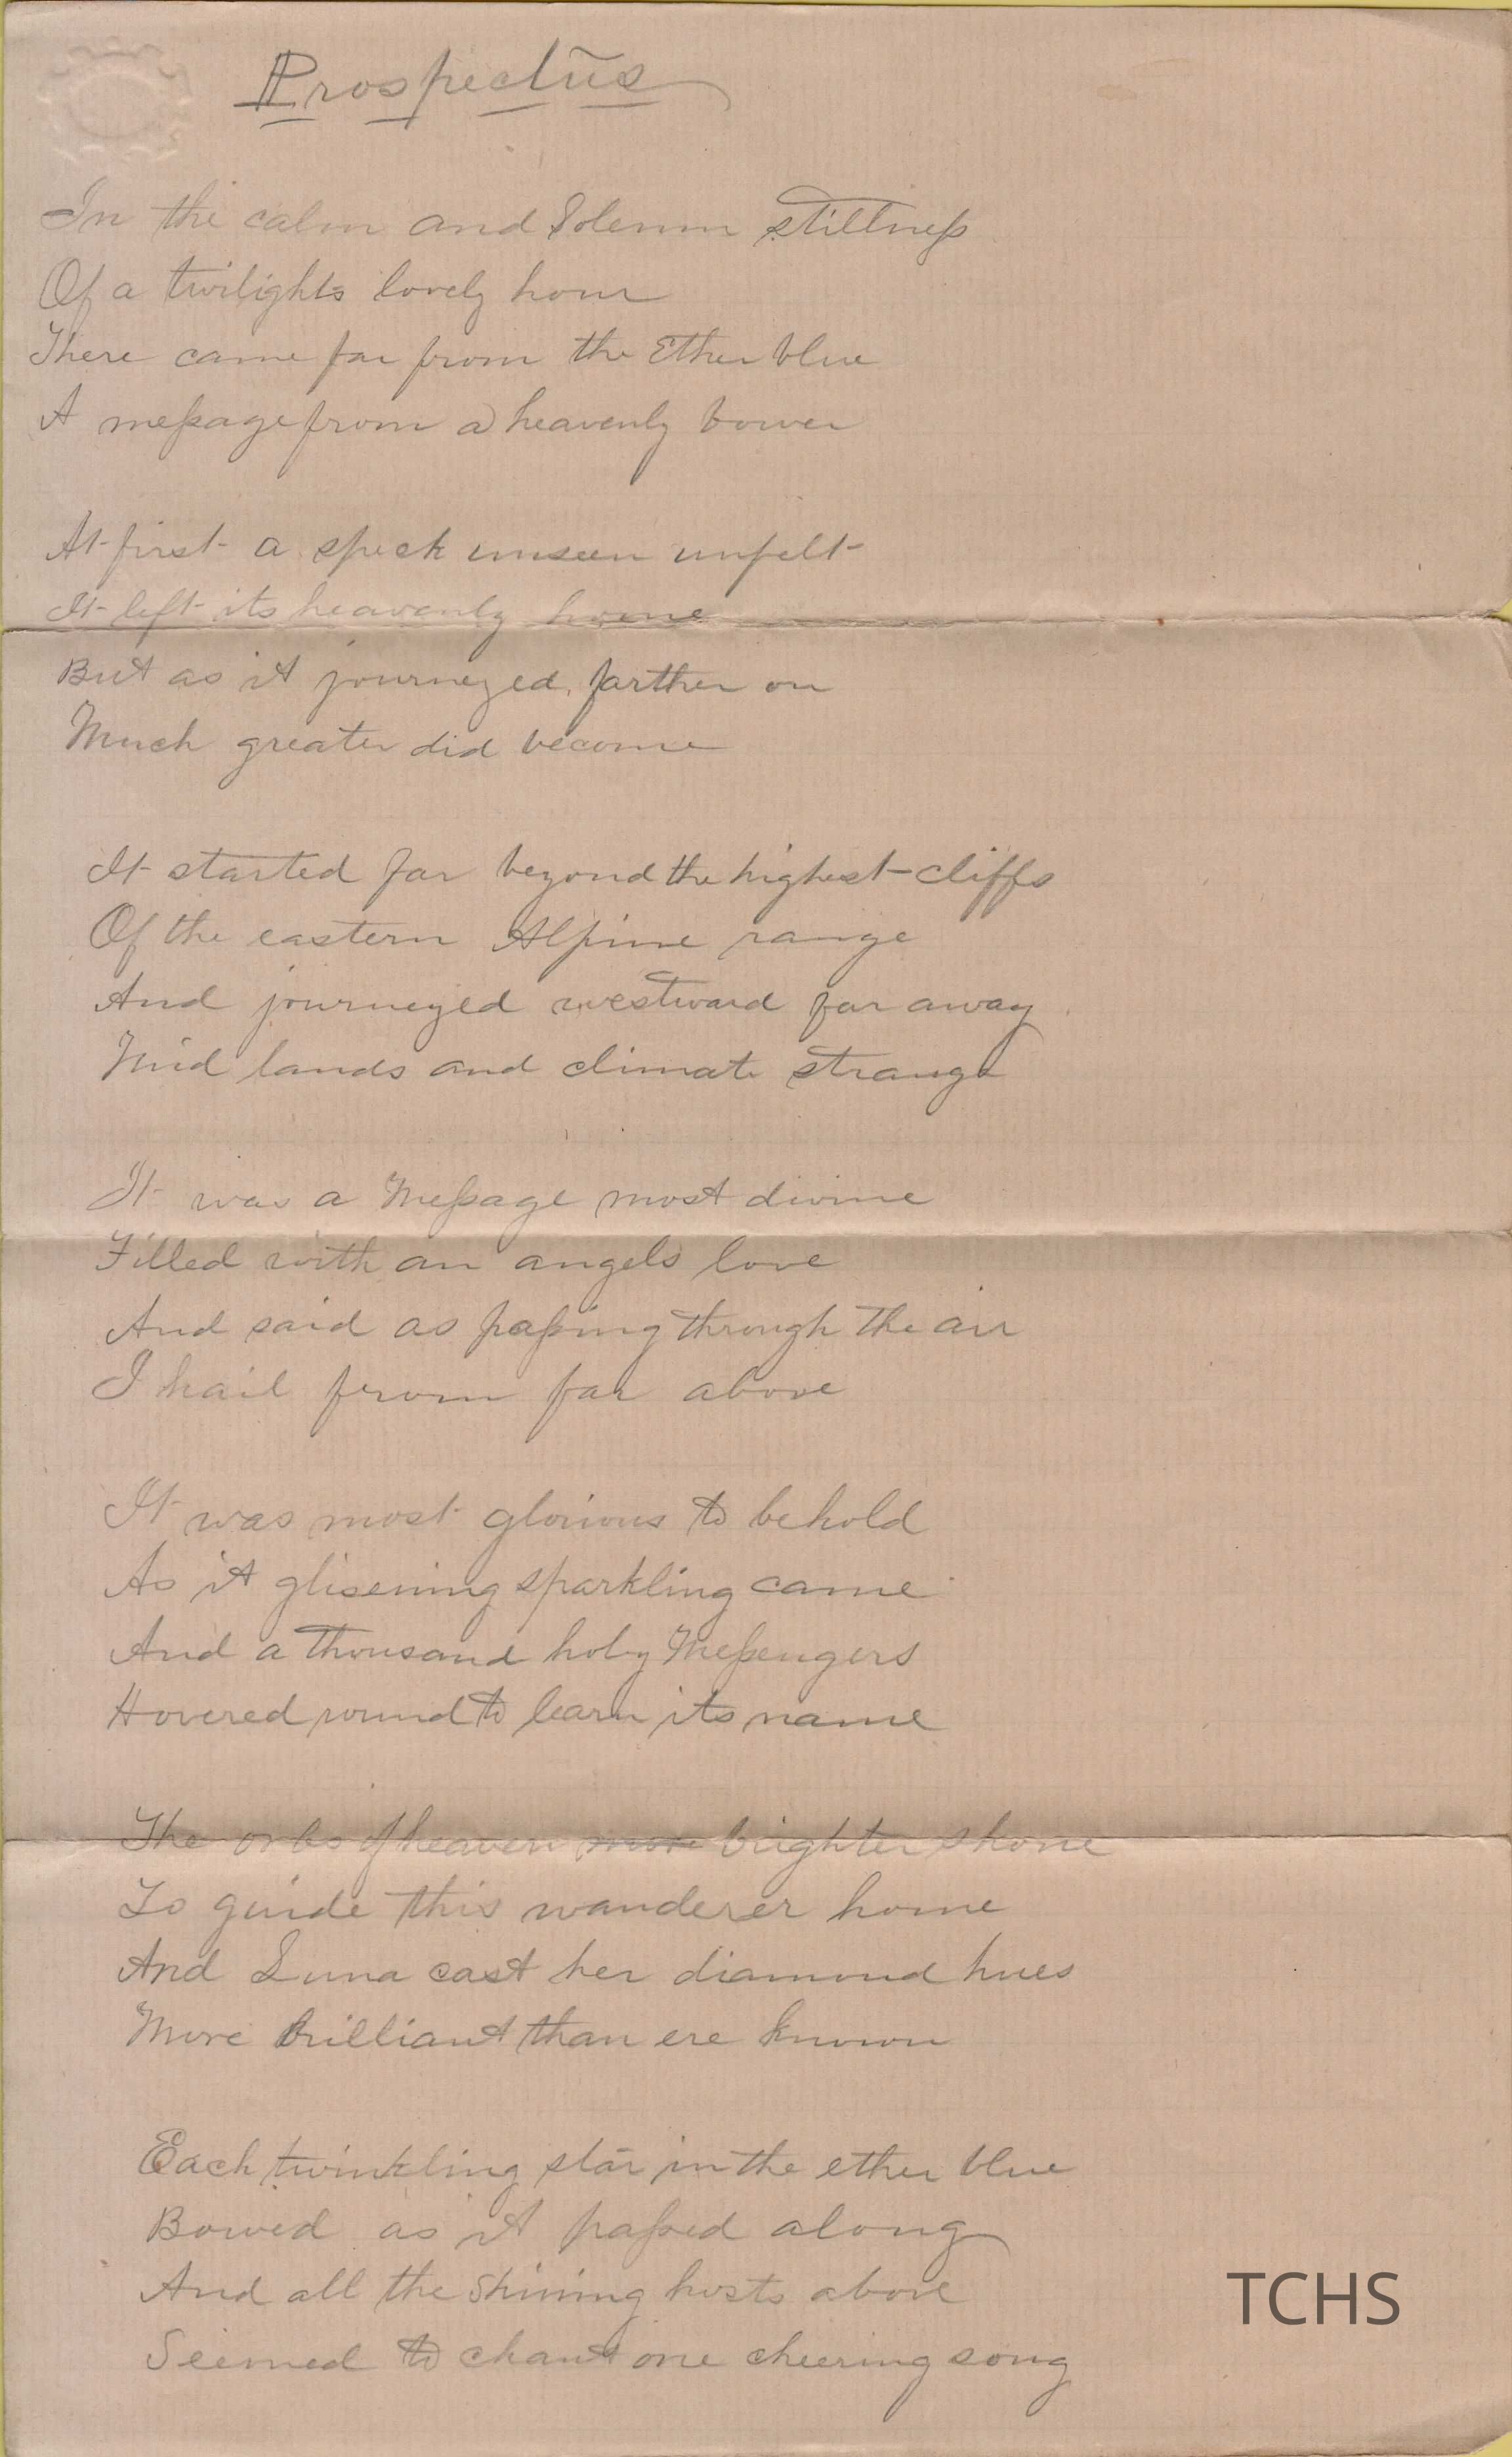 Prospectus
In the calm and Solemn stillness
Of a twilights lovely hour
There came far from the Ether blue
A message from a heavenly bower
At first a speck unseen unfelt
It left its heavenly home
But as it journeyed, farther on
Much greater did become
It started far beyond the highest cliffs
Of the eastern Alpine range
And journeyed westward far away
Mid lands and climate strange
It was a Message most divine
Filled with an angels love
And said as passing through the air
I hail from far above
It was most glorious to behold
As it glisening sparkling came
And a thousand holy Messengers
Hovered round to learn its name
The orbs of heaven more brighter shone
To guide this wanderer home
And Luna cast her diamond hues
More brilliant than ere known
Each twinkling star in the ether blue
Bowed as it passed along
And all the Shining hosts above
Seemed to chant one cheering song
TCHS